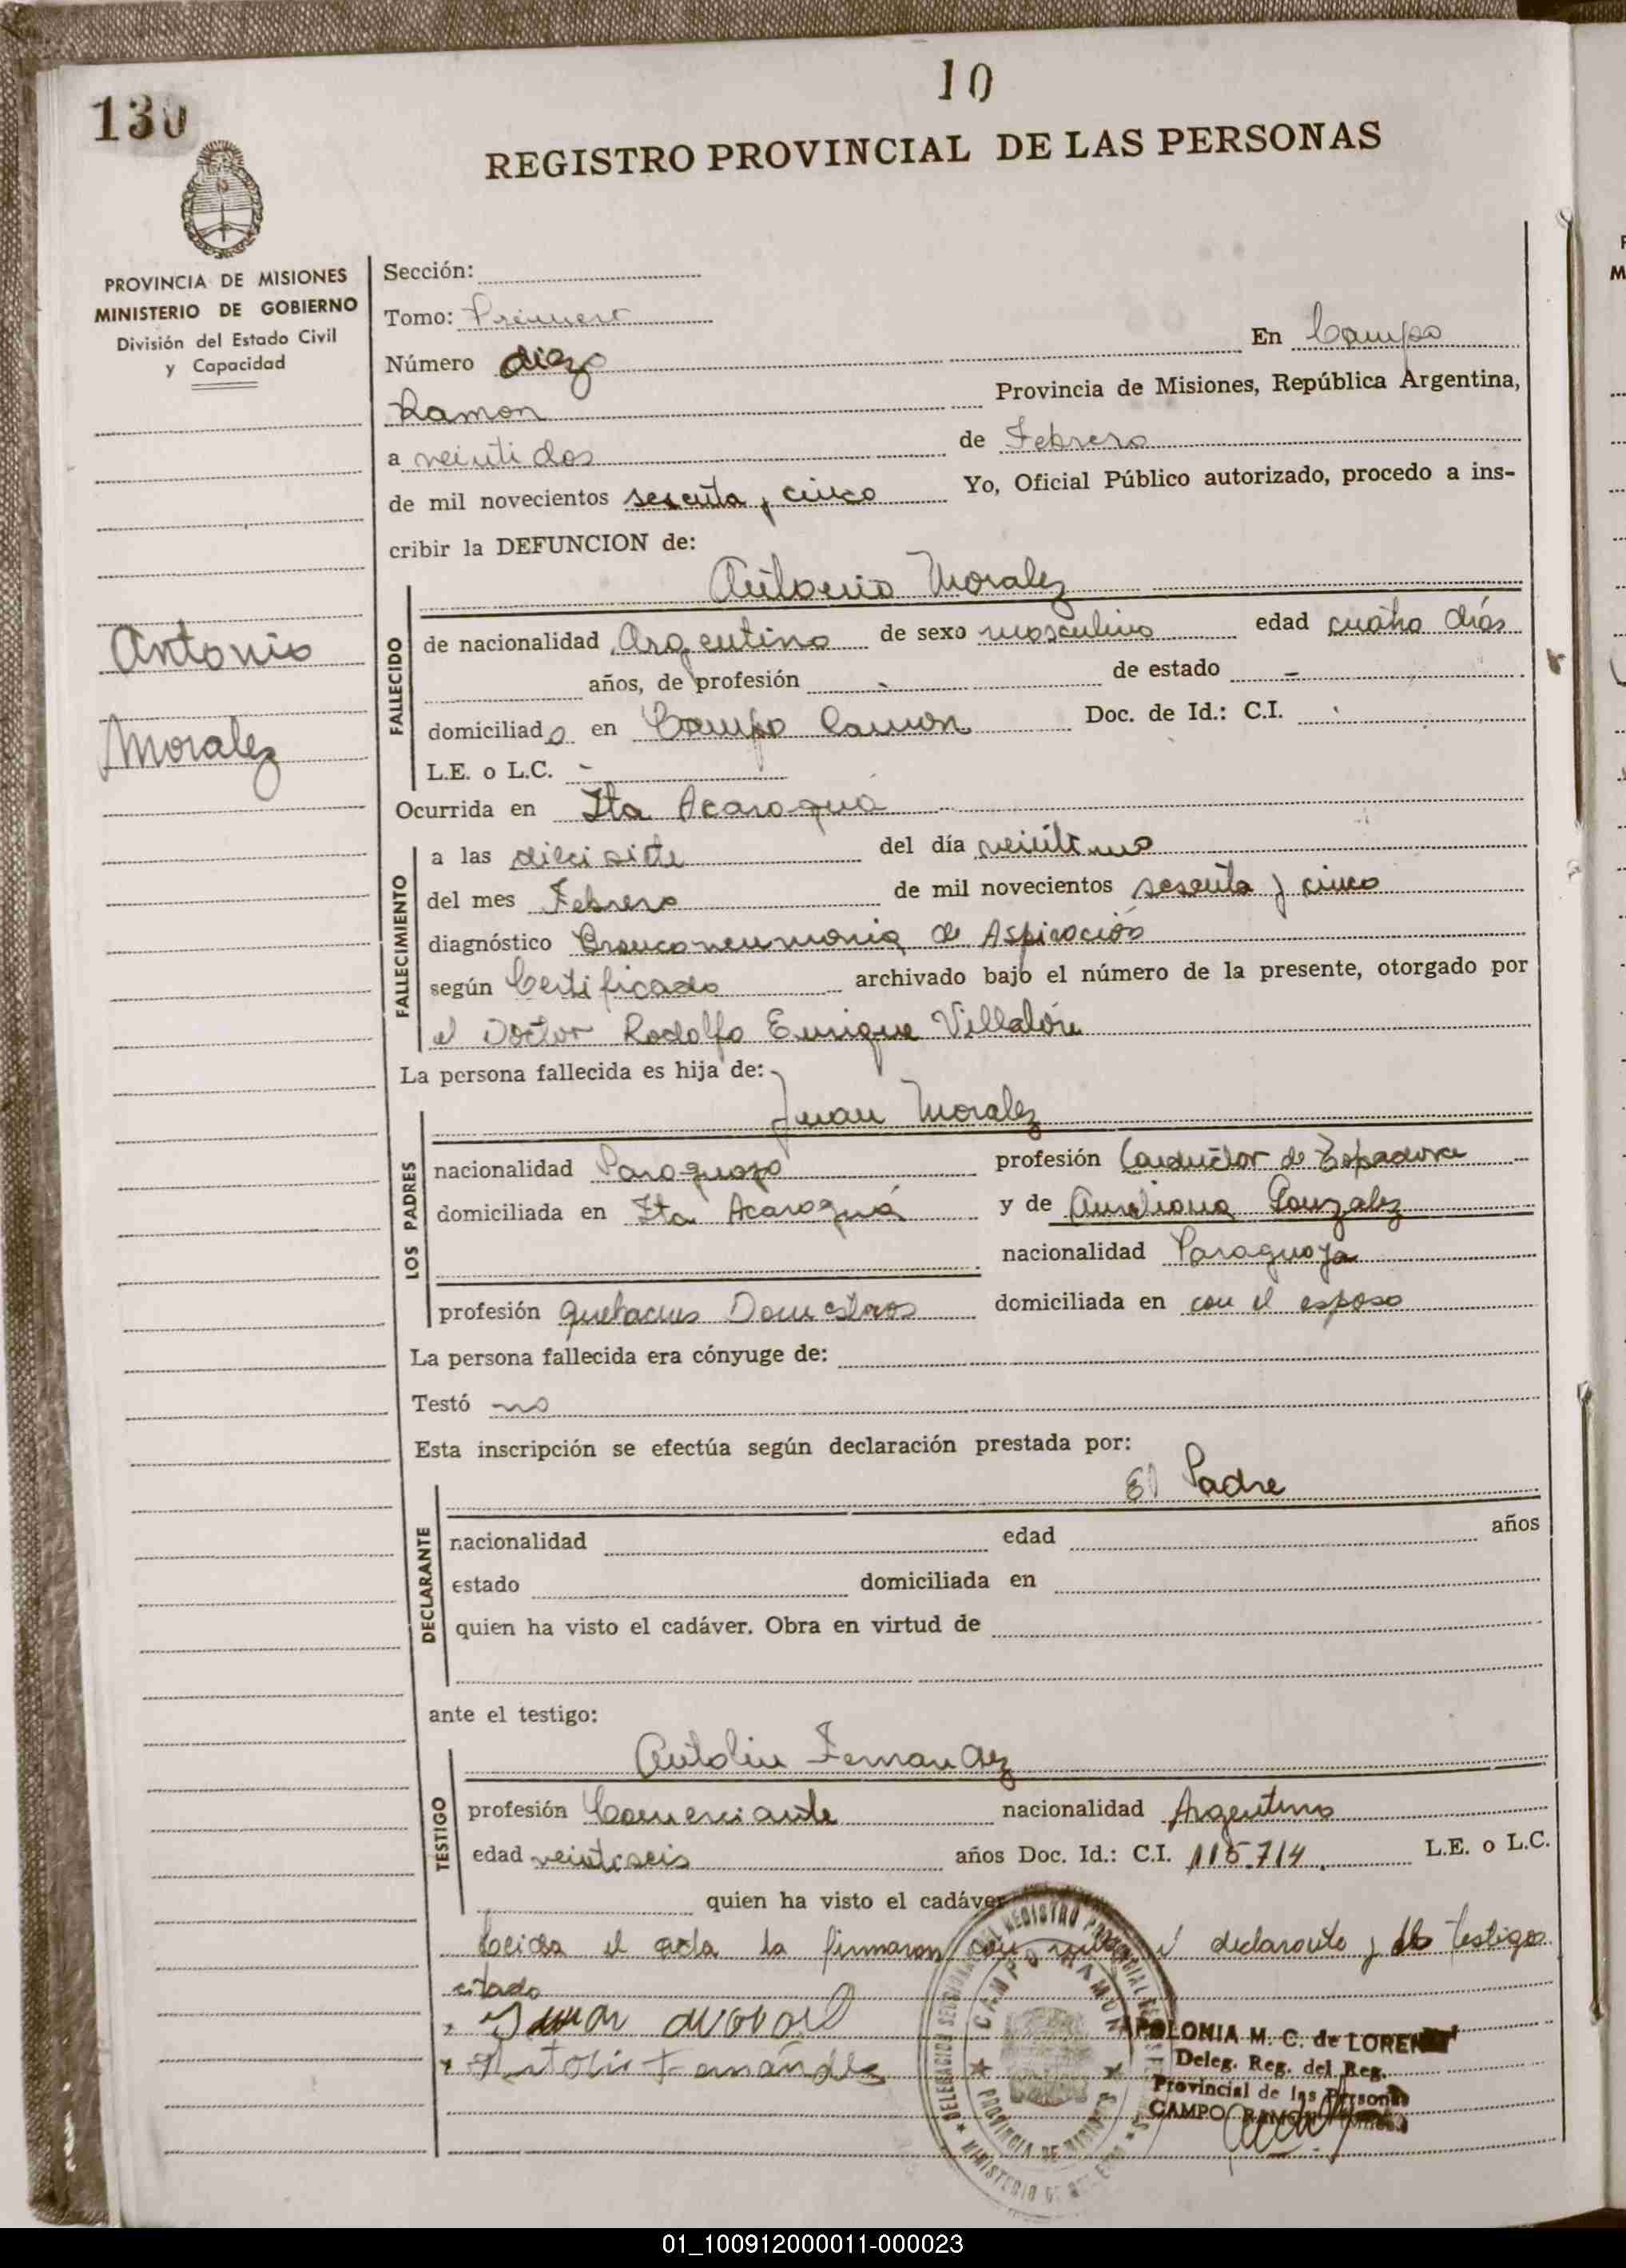 10
130
REGISTRO PROVINCIAL DE LAS PERSONAS
PROVINCIA DE MISIONES
MINISTERIO DE GOBIERNO
División del Estado Civil
y Capacidad
Antonio
Moralez
Sección:
Tomo: Primero
Número diez En Campo
Ramon Provincia de Misiones, República Argentina,
a veintidos de Febrero
de mil novecientos sesenta y cinco Yo, Oficial Público autorizado, procedo a ins-
cribir la DEFUNCION de:
Antonio Moralez
FALLECIDO
de nacionalidad Argentino de sexo masculino edad cuatro días
años, de profesión - de estado -
domiciliado en Campo Ramon Doc. de Id.: C.I.
L.E. o L.C. -
Ocurrida en Ita Acaraguá
FALLECIMIENTO
a las dieci siete del día veintiuno
del mes Febrero de mil novecientos sesenta y cinco
diagnóstico Bronconeumonia de Aspiración
según Certificado archivado bajo el número de la presente, otorgado por
el Doctor Rodolfo Enrique Villalón
La persona fallecida es hija de:
Juan Moralez
LOS PADRES
nacionalidad Paraguayo profesión Conductor de Topadora
domiciliada en Ita Acaraguá y de Aureliana Gonzalez
nacionalidad Paraguaya
profesión quehaceres Domesticos domiciliada en con el esposo
La persona fallecida era cónyuge de:
Testó no
Esta inscripción se efectúa según declaración prestada por:
El Padre
DECLARANTE
nacionalidad edad años
estado domiciliada en
quien ha visto el cadáver. Obra en virtud de
ante el testigo:
Antolin Fernandez
TESTIGO
profesión Comerciante nacionalidad Argentino
edad veintiseis años Doc. Id.: C.I. 115.714 L.E. o L.C.
quien ha visto el cadáver
Leida el acta la firmaron con el declarante y testigo
citado
Juan
Antolin Fernández
CAMPO RAMON
PROVINCIA DE MISIONES
APOLONIA M. C. de LORENZ
Deleg. Reg. del Reg.
Provincial de las Personas
CAMPO RAMON
01_100912000011-000023